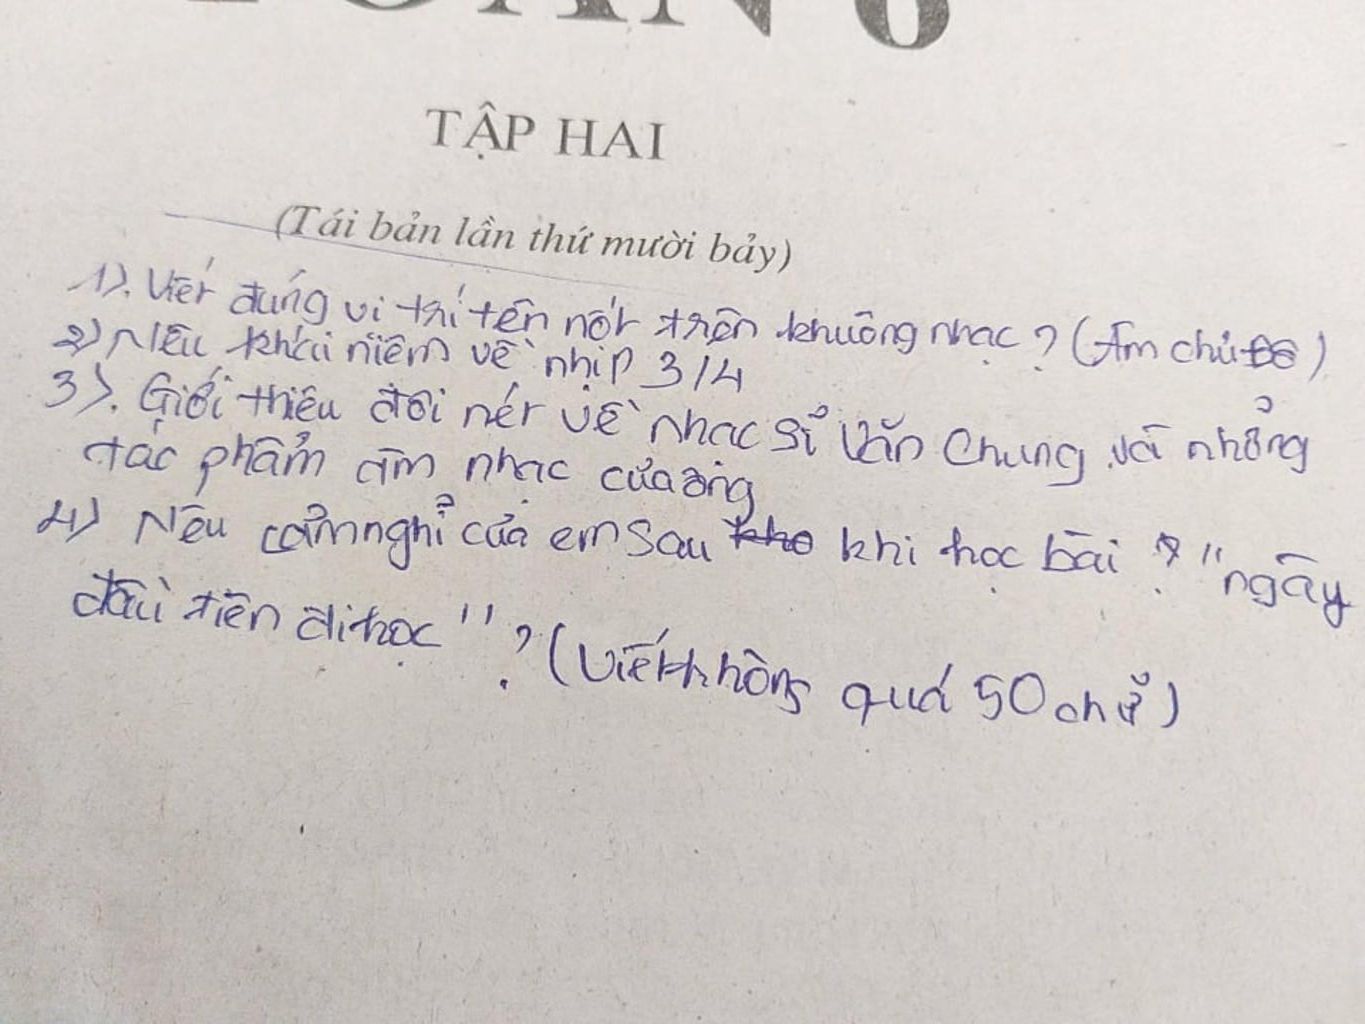 TOÁN 6
TẬP HAI
(Tái bản lần thứ mười bảy)
1). Viết đúng vị trí tên nốt trên khuông nhạc? (Âm chủ )
2) Nêu khái niệm về nhịp 3/4
3). Giới thiệu đôi nét về nhạc sĩ Văn Chung và những
tác phẩm âm nhạc của ông
4) Nêu cảm nghĩ của em sau khi học bài ? "ngày
đầu tiên đi học"? (Viết không quá 50 chữ)